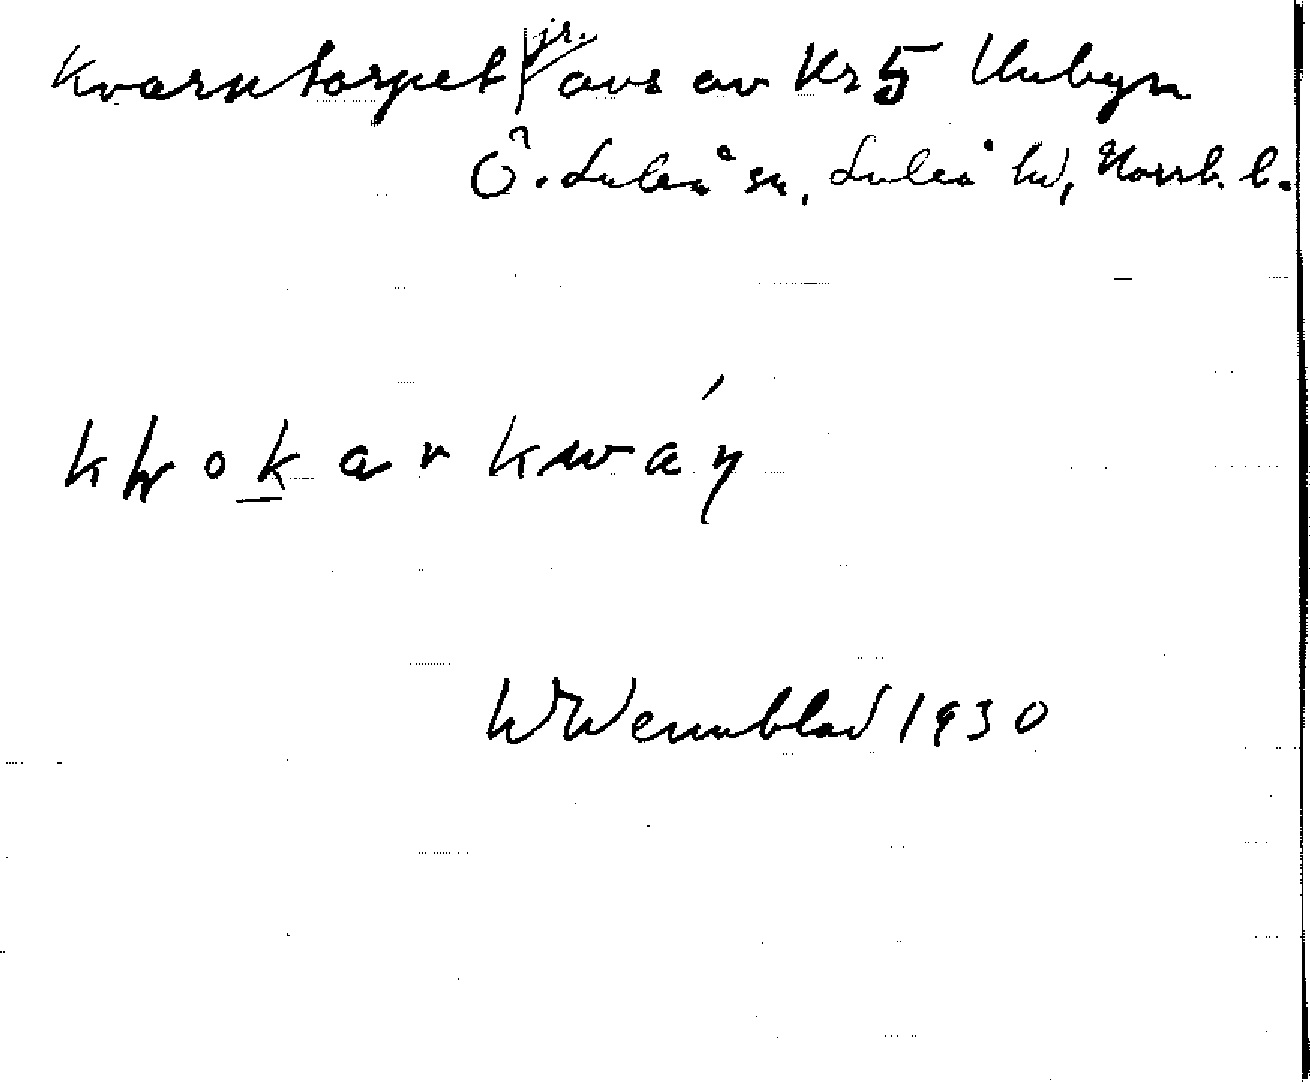 Kvarntorpet jr. avs av Kr 5 Unbyn
Ö. Luleå sn, Luleå hd, Norrb. l.
W Wennblad 1930